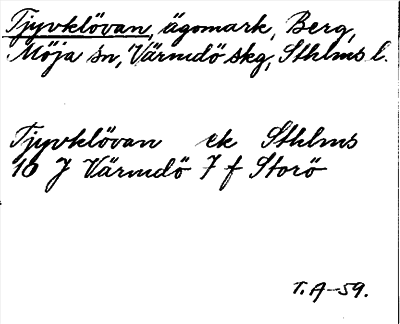 Tjyvklövan, ägomark, Berg,
Möja sn, Värmdö skg, Sthlms l.
Tjyvklövan ek Sthlms
10 J Värmdö 7 f Storö
T. A-59.